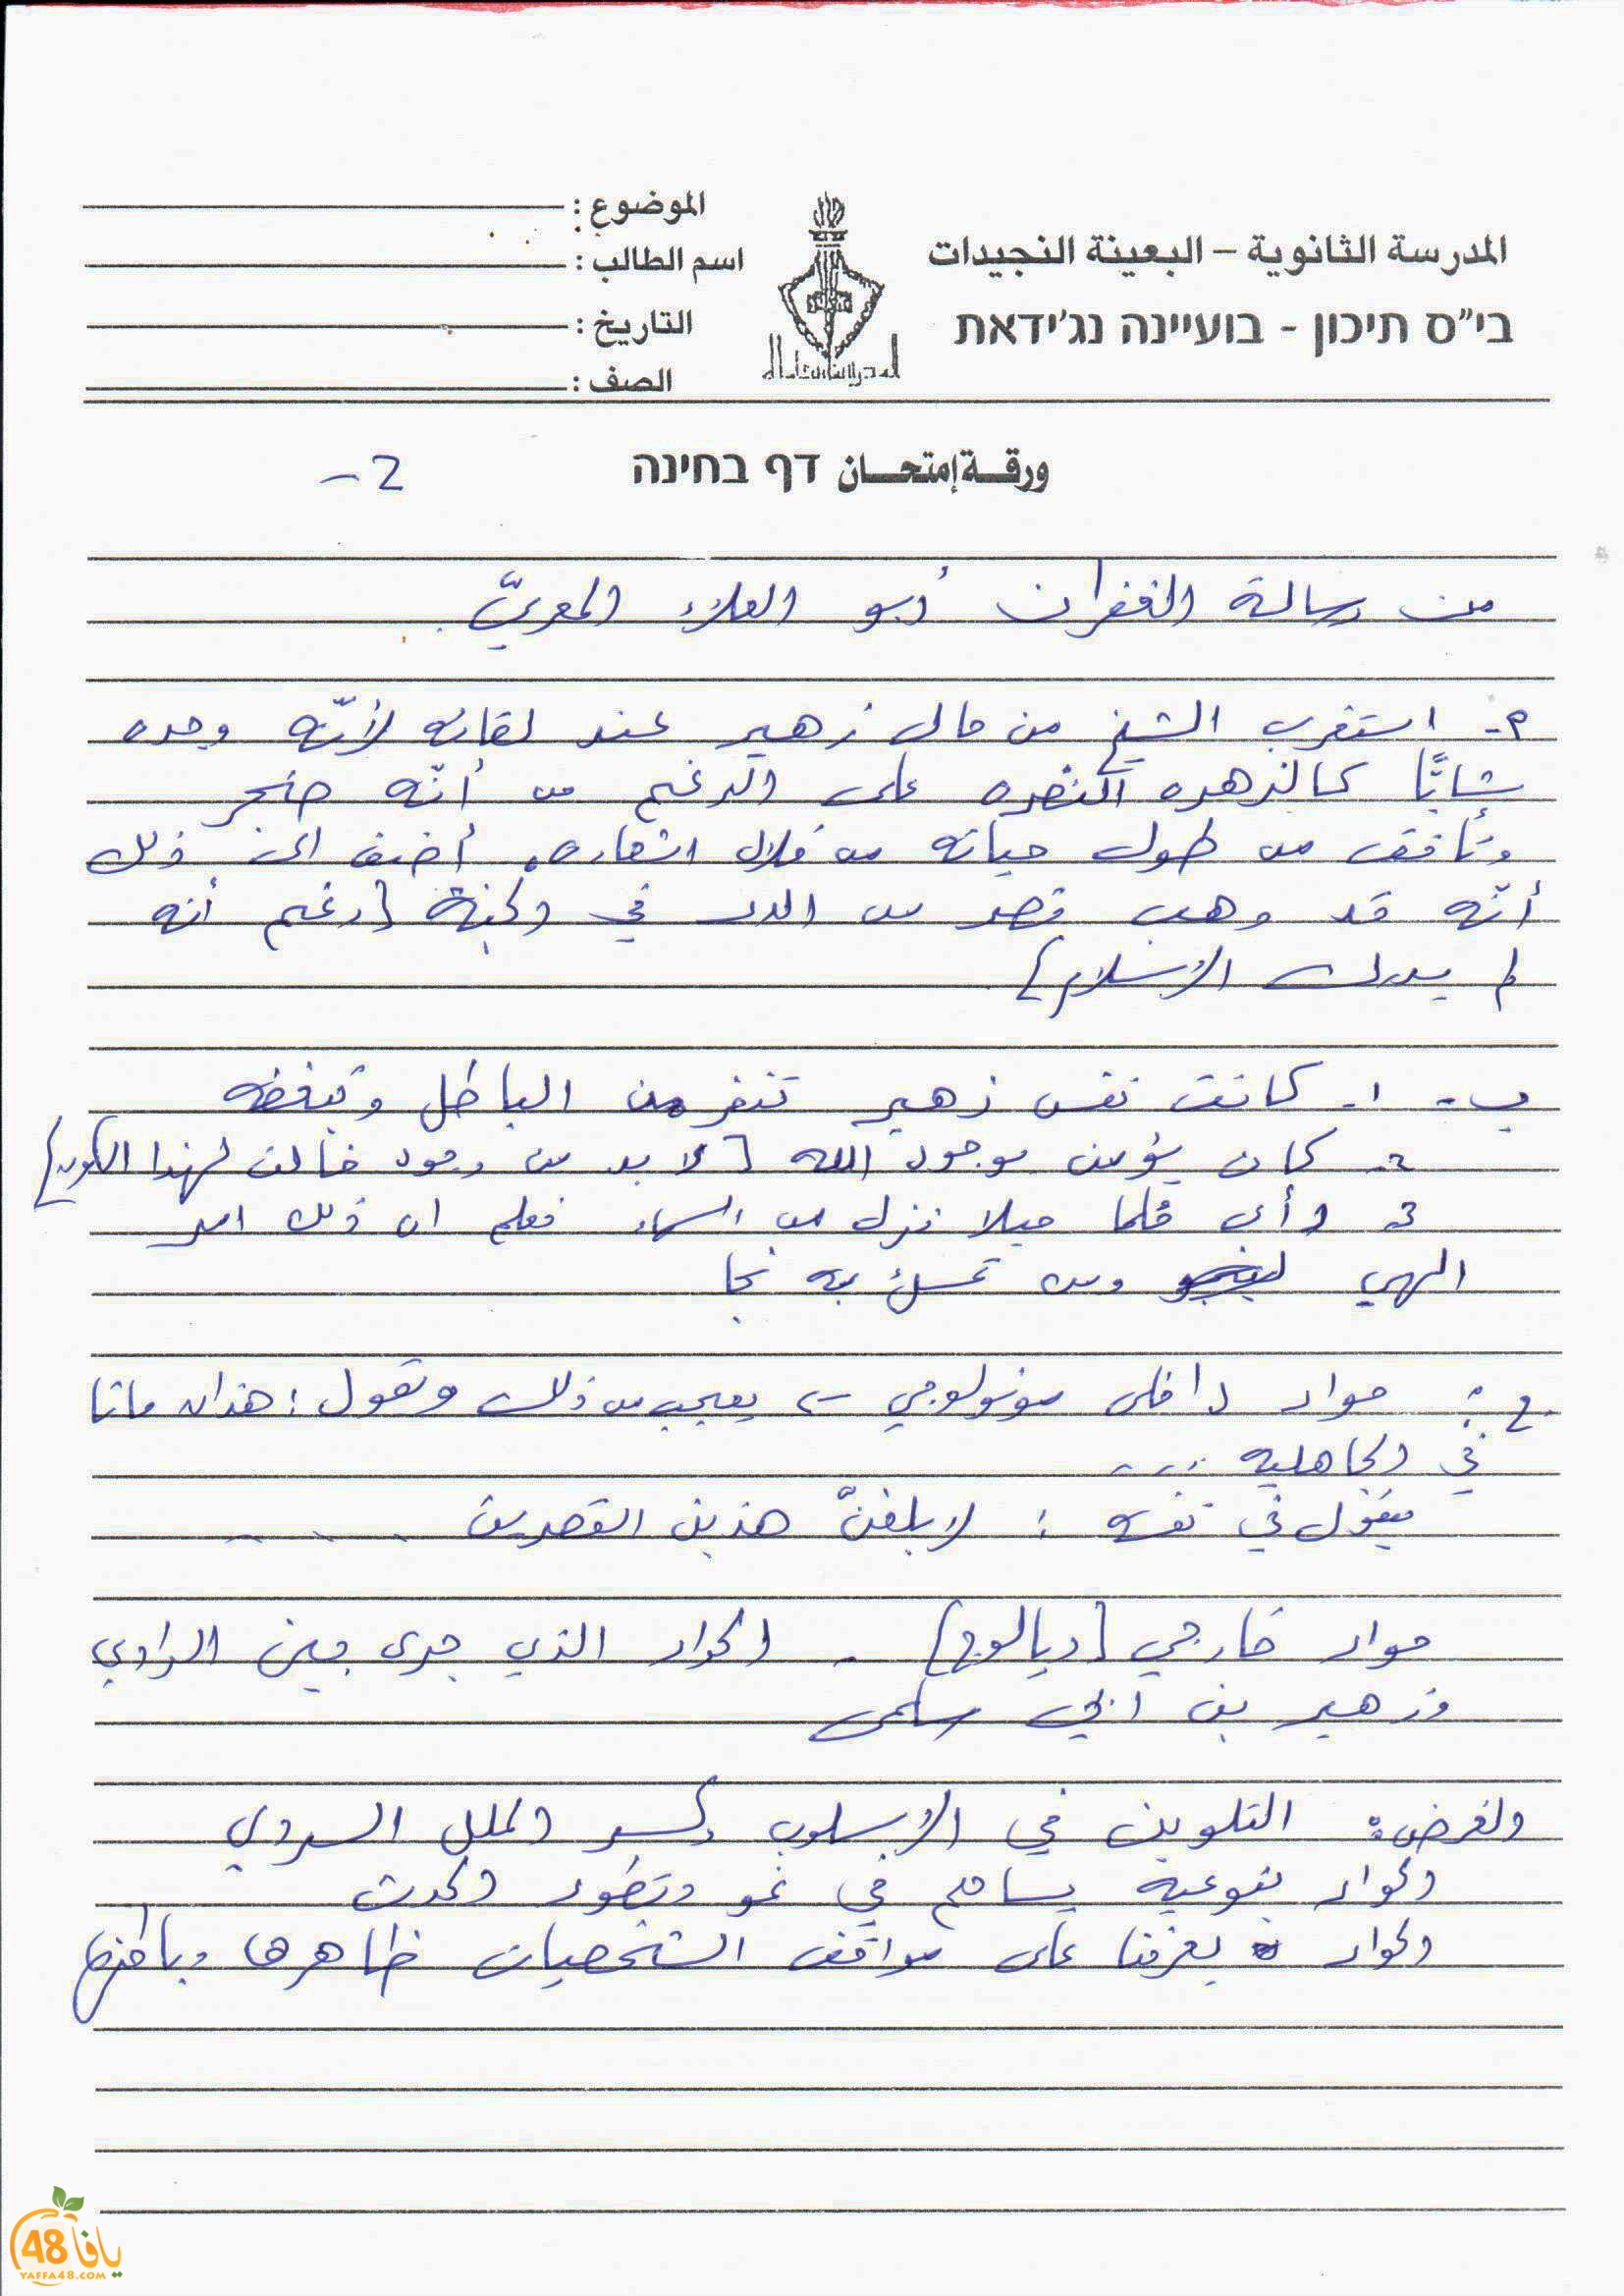 المدرسة الثانوية – البعينة النجيدات
בי"ס תיכון - בועיינה נג'ידאת
الموضوع :
اسم الطالب :
التاريخ :
الصف :
ورقة إمتحان דף בחינה
2-
من رسالة الغفران أبو العلاء المعريّ
أ- استغرب الشيخ من حال زهير عند لقائه لأنّه وجده
شابًّا كالزهره النضره على الرغم من أنّه ضجر
وتأفف من طول حياته من خلال اشعاره. أضف الى ذلك
أنّه قد وهب قصر من الدر في الجنة [رغم أنه
لم يدرك الإسلام]
ب- 1- كانت نفس زهير تنفر من الباطل وتبغضه
2- كان يؤمن بوجود الله [لا بد من وجود خالق لهذا الكون]
3- رأى حلما حبلا نزل من السماء فعلم ان ذلك امر
الهي ومن تمسك به نجا
ج: حوار داخلي مونولوجي يعجب من ذلك ويقول: هذان ماتا
في الجاهليه ...
يقول في نفسه : لابلغنّ هذين القصرين ....
حوار خارجي [ديالوج] - الحوار الذي جرى بين الراوي
وزهير بن ابي سلمى
والغرض: التلوين في الاسلوب وكسر الملل السردي
الحوار بنوعيه يساهم في نمو وتطور الحدث
الحوار يعرفنا على مواقف الشخصيات ظاهرها وباطنها
يافا 48
YAFFA48.COM